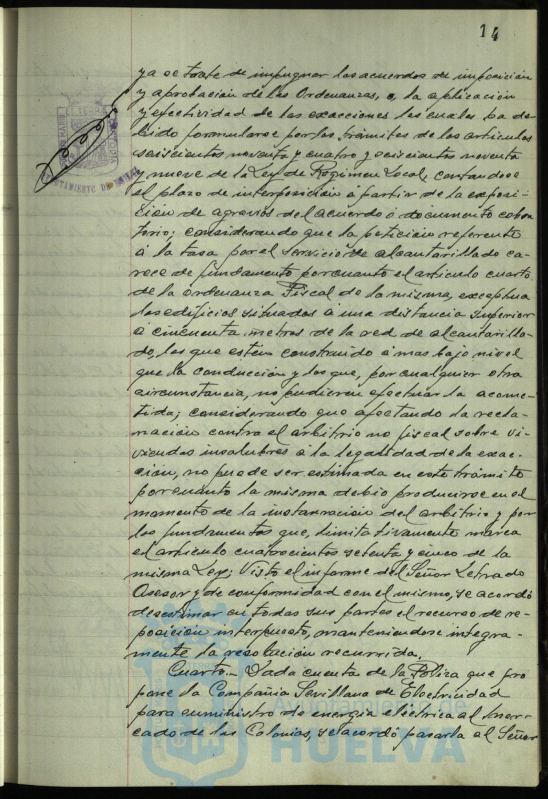 14
ya se trate de impugnar los acuerdos de imposición
y aprobación de las Ordenanzas, o, la aplicación
y efectividad de las exacciones las cuales ha de-
bido formularse por los trámites de los artículos
seiscientos noventa y cuatro y seiscientos noventa
y nueve de la Ley de Régimen Local, contandose
el plazo de interposición á partir de la exposi-
ción de agravios del acuerdo ó documento cobra-
torio; considerando que la petición referente
á la tasa por el servicio de alcantarillado ca-
rece de fundamento por cuanto el artículo cuarto
de la ordenanza Fiscal de la misma, exceptua
los edificios situados á una distancia superior
á cincuenta metros de la red de alcantarilla-
do, los que esten construido á mas bajo nivel
que la conducción y los que, por cualquier otra
circunstancia, no pudieren efectuar la acome-
tida; considerando que afectando la recla-
mación contra el arbitrio no fiscal sobre vi-
viendas insalubres á la legalidad de la exac-
ción, no puede ser estimada en este trámite
por cuanto la misma debio producirse en el
momento de la instauración del arbitrio y por
los fundamentos que, limitativamente marca
el artículo cuatrocientos setenta y cinco de la
misma Ley; Visto el informe del Señor Letrado
Asesor y de conformidad con el mismo, se acordó
desestimar en todas sus partes el recurso de re-
posición interpuesto, manteniendose integra-
mente la resolución recurrida.
Cuarto.- Dada cuenta de la Poliza que pro
pone la Compañia Sevillana de Electricidad
para suministro de energía eléctrica al Mer-
cado de las Colonias, se acordó pasarla al Señor
Ayuntamiento de
HUELVA